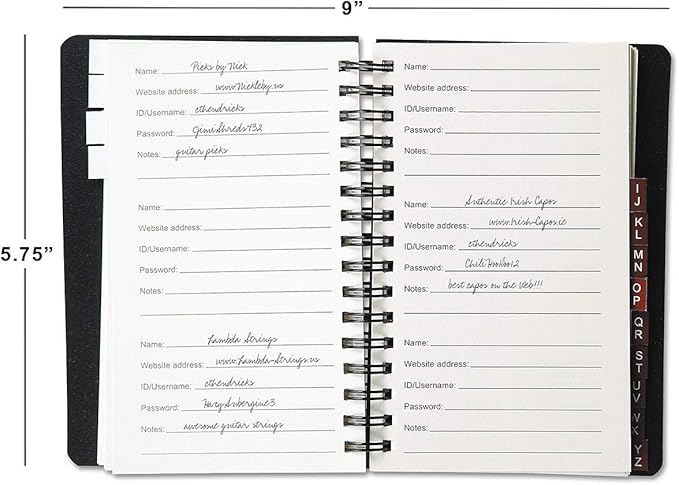 9"
5.75"
Name: Picks by Nick
Website address: www.Nickleby.us
ID/Username: ethendricks
Password: JimiShreds432
Notes: guitar picks
Name:
Website address:
ID/Username:
Password:
Notes:
Name: Lambda Strings
Website address: www.Lambda-Strings.us
ID/Username: ethendricks
Password: HazyAubergine3
Notes: awesome guitar strings
Name:
Website address:
ID/Username:
Password:
Notes:
Name: Authentic Irish Capos
Website address: www.Irish-Capos.ie
ID/Username: ethendricks
Password: ChiliHooVoo12
Notes: best capos on the Web!!!
Name:
Website address:
ID/Username:
Password:
Notes:
I
J
K
L
M
N
O
P
Q
R
S
T
U
V
W
X
Y
Z